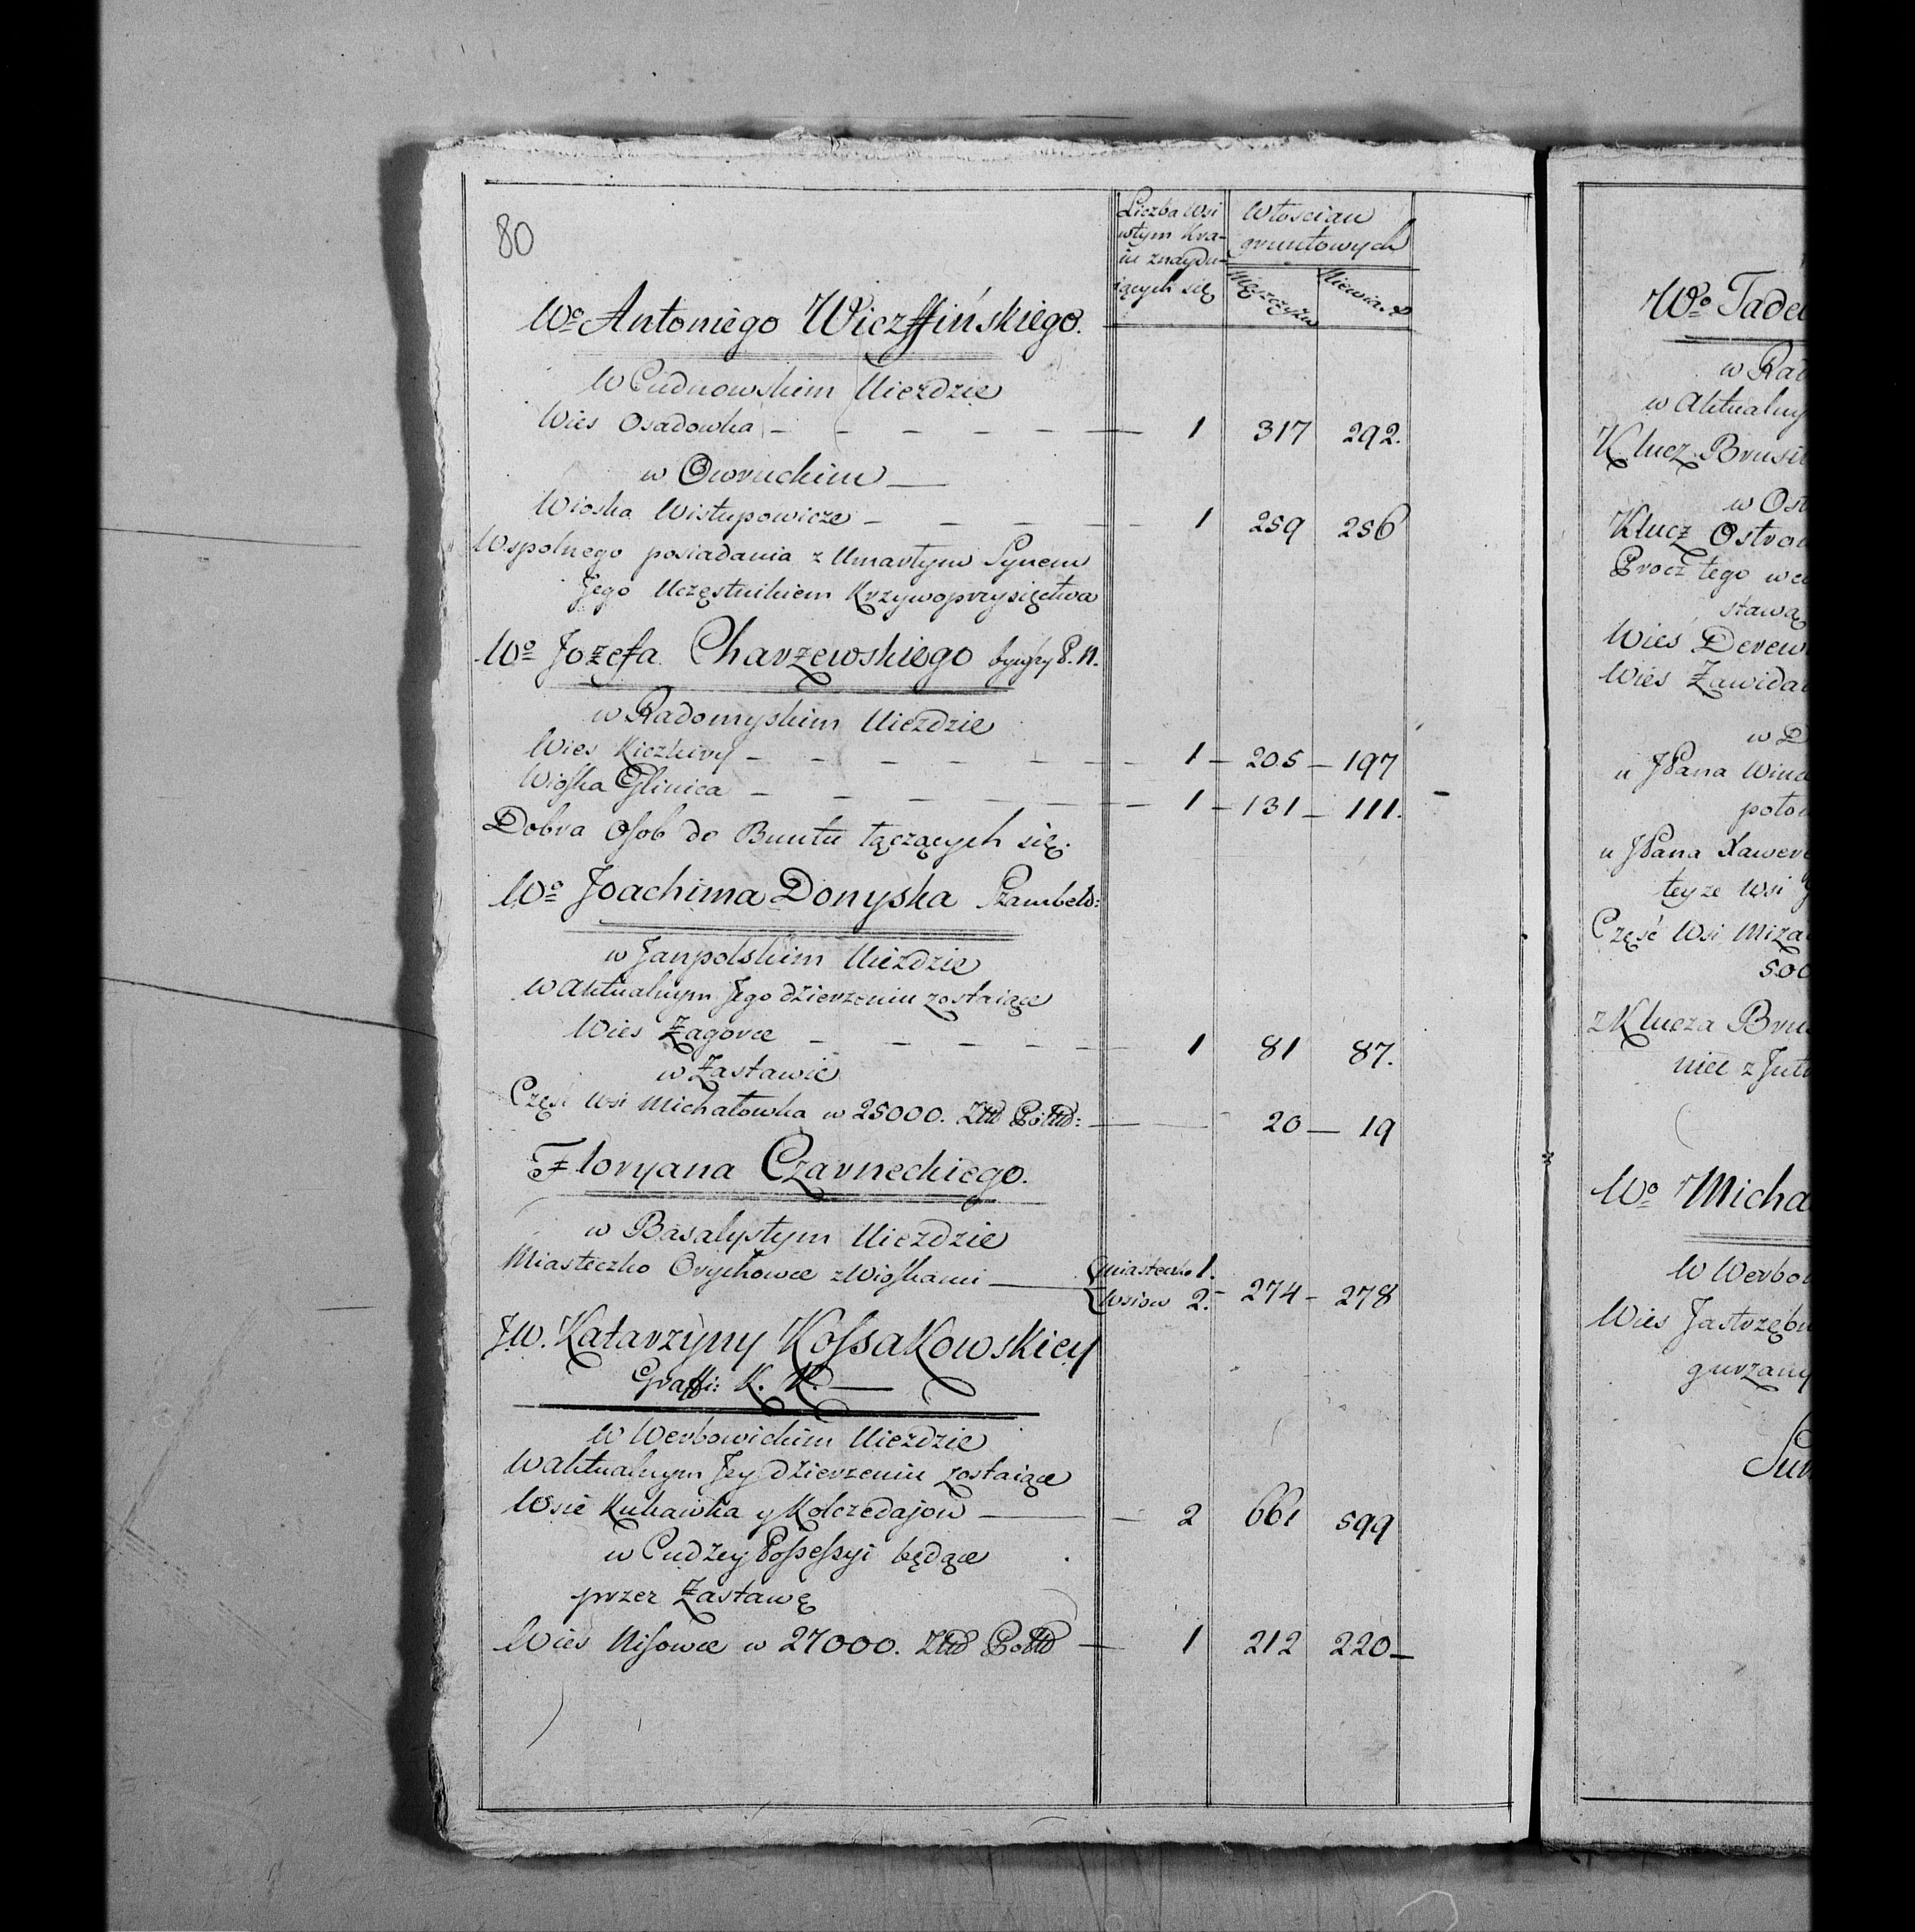 80
Liczba Wsi
wtym Kra-
iu znaydu-
iących się
Włoscian
gruntowych
Męzczyzn
Niewiast
Wo Antoniego Wiczffińskiego.
W Cudnowskim Uiezdzie
Wies Osadowka - - - - - 1 317 292.
w Owruckim
Wioska Wistupowicze - - - - 1 259 256
Wspolnego posiadania z Umartym Synem
Jego Uczęstnikiem Krzywoprzysięstwa
Wo Jozefa Charzewskiego bywszy P. N.
w Radomyskim Uiezdzie
Wies Kiczkiry - - - - - 1 - 205 - 197
Wioska Glinica - - - - - 1 - 131 - 111.
Dobra Osob do Buntu łączących się.
Wo Joachima Donyska Szambeld:
w Janpolskim Uiezdzie
w aktualnym Jego dzierzeniu zostaiące
Wies Zagorce - - - - 1 81 87.
w Zastawie
Częsc Wsi Michałowka w 25000. Złł Pollł: 20 - 19
Floryana Czarneckiego.
w Basalystym Uiezdzie
Miasteczko Orychowce z Wioskami
miasteczko 1.
Wsiow 2. - 274 - 278
JW. Katarzyny Kossakowskiey
Graffi: K. K.
W Werbowickim Uiezdzie
W aktualnym Jey dzierzeniu zostaiące
Wsie Kukawka y Kolczedajow 2 661 599
w Cudzey Possessyi będące
przez Zastawę
Wies Nisowce w 27000. Złł Pollł - 1 212 220
Wo Tade
w Rad
w Aktualny
Klucz Brusil
w Ost
Klucz Ostro
Procz tego w
stawą
Wieś Derew
Wies Zawida
w D
u JPana Win
poto
u JPana Xawer
teyze Wsi
Część Wsi Miza
500
z Klucza Bru
nice z Jut
Wo Micha
W Werbo
Wies Jastrzębi
gurzany
Sum